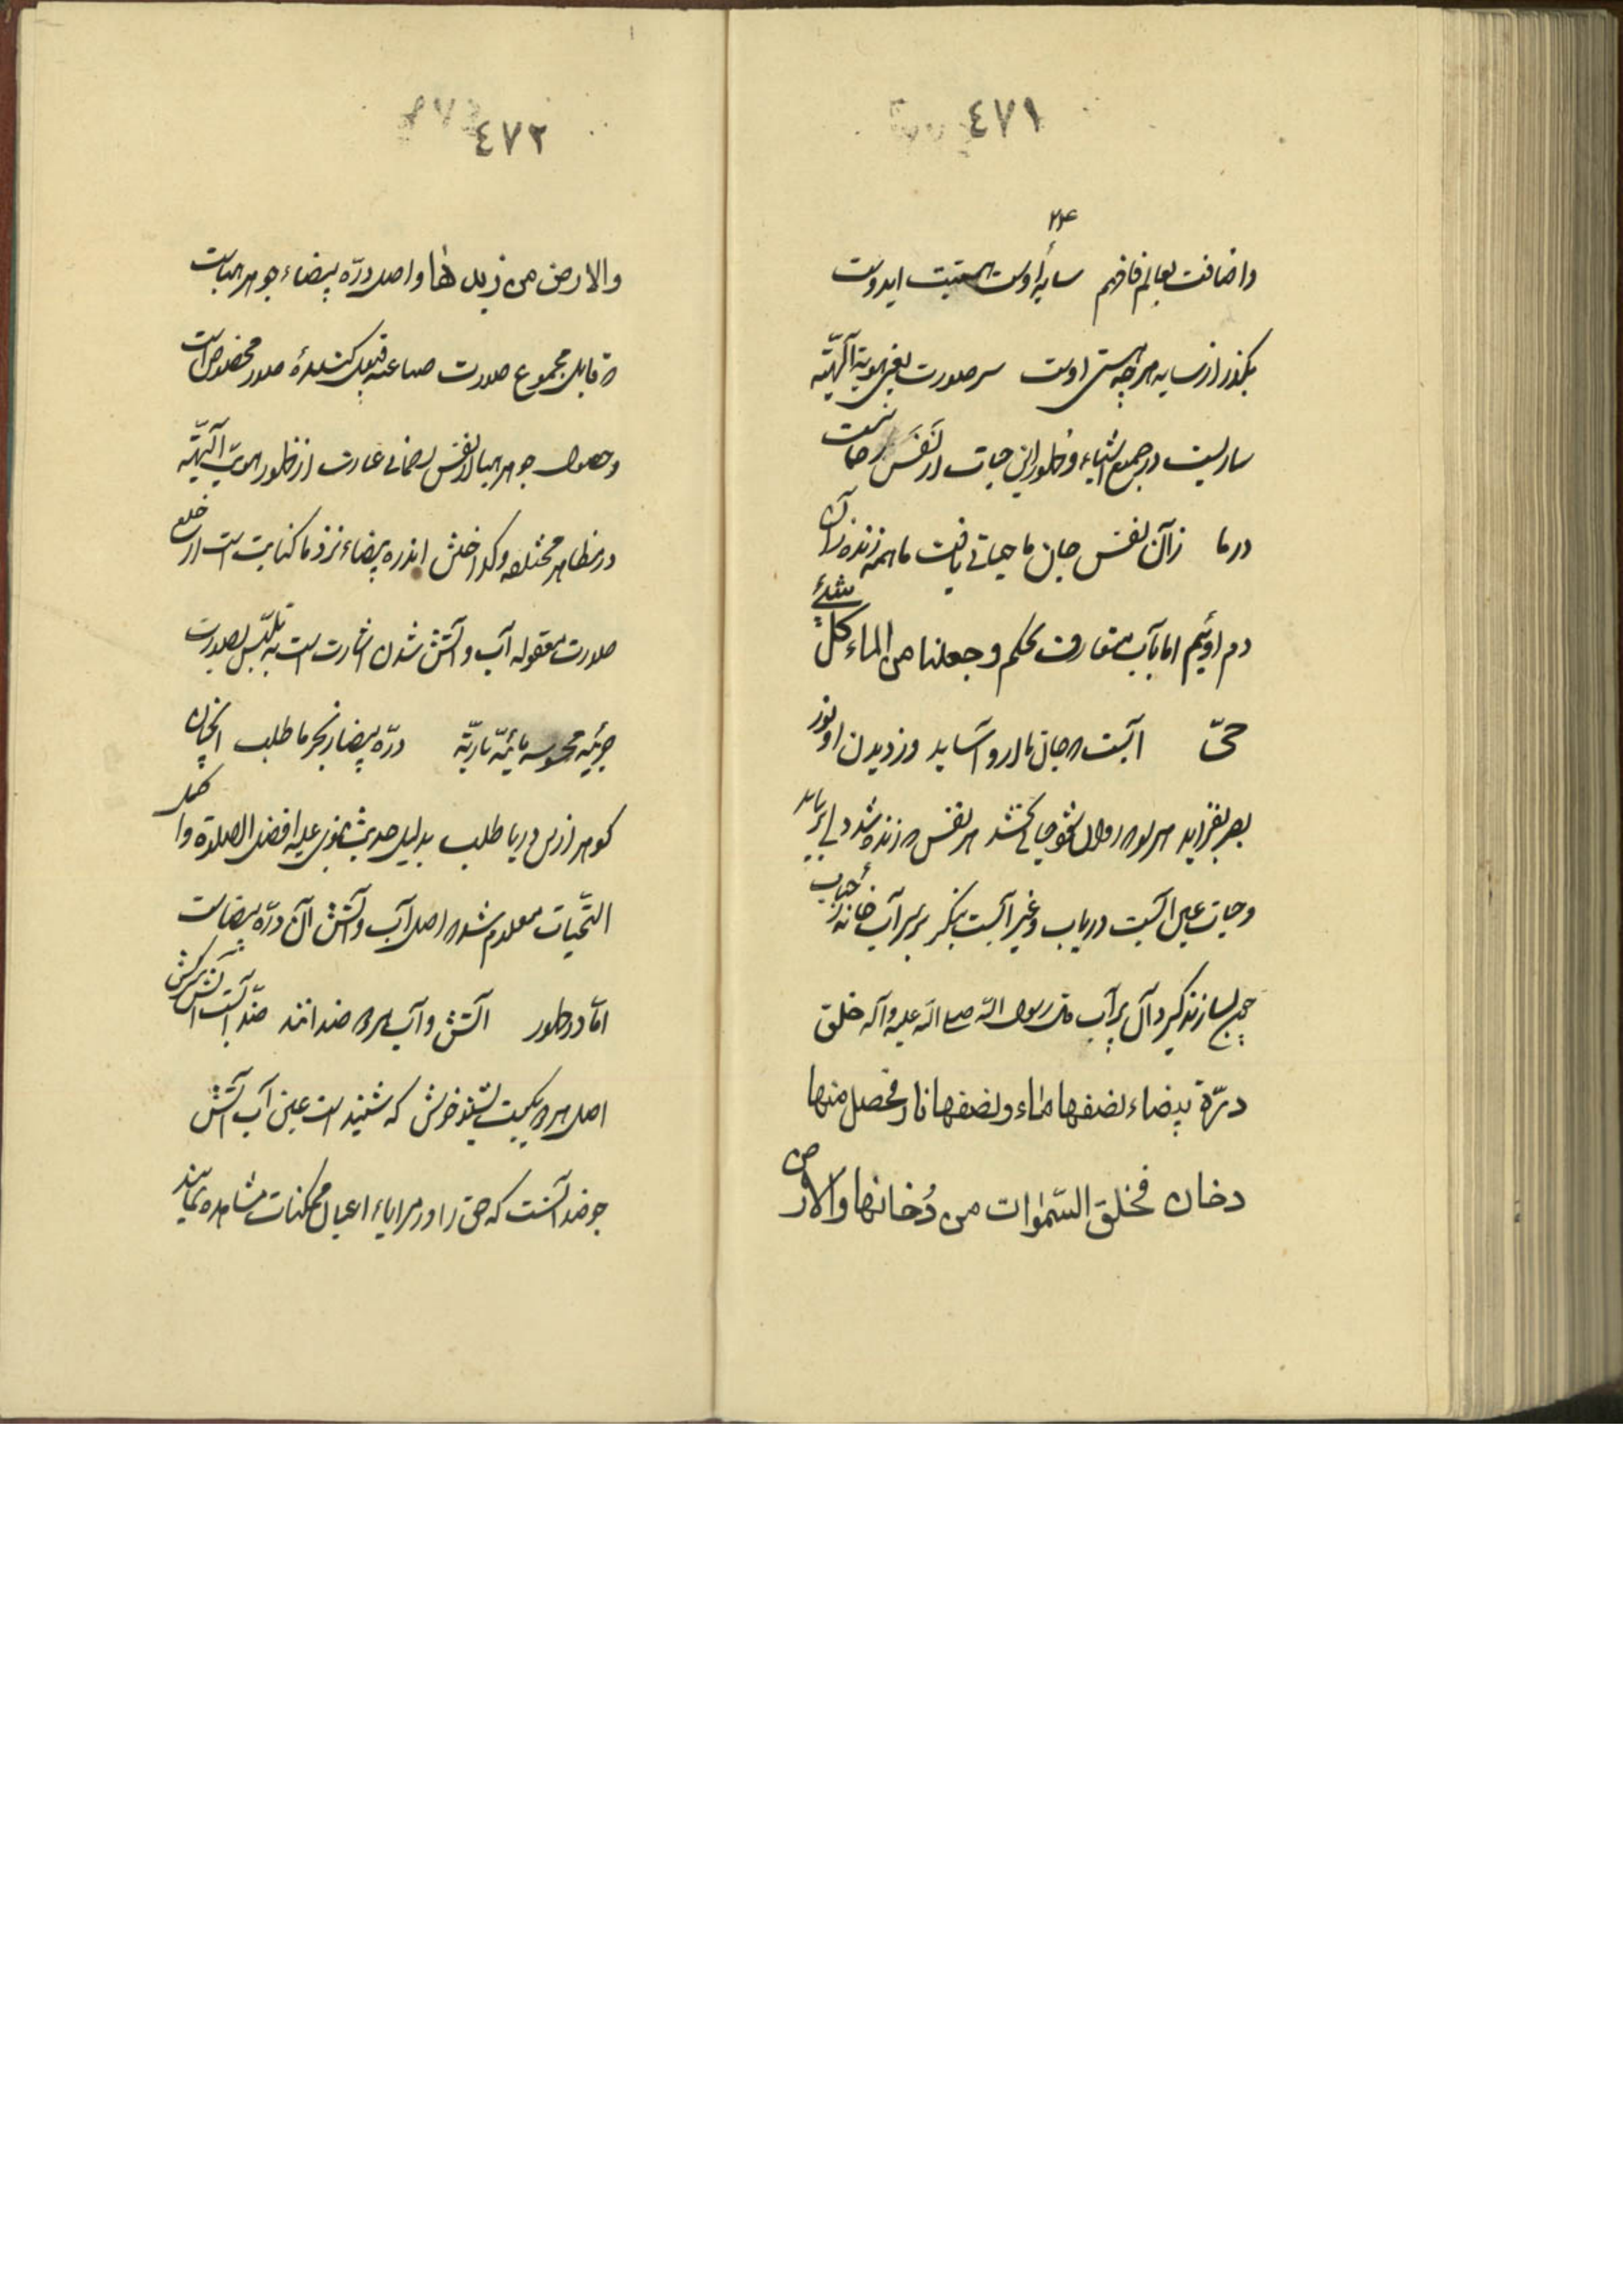 ٤٧١
٢٤
واضافت بعالم فافهم سایهٔ اوست هستیت ایدوست
بگذر از سایه هرچه هستی اوست سر صورت یعنی هویة آلهیّه
ساریست در جمیع اشیاء و ظهور این حیات از نَفَس رحمانست
در ما زآن نفس جان ما حیاتی یافت ما همه زنده زآن
دم اوئیم اما بآب متعارف بحکم وجعلنا من الماء کلّ شئ
حیّ آبست که جان ما ازو آساید وز دیدن او نور
بصر بفزاید هر لوح روان شخص حیاتی بخشد هر نفس که زنده شد دمی بر باید
وحیات عین آبست دریاب وغیر آبست بنگر بر سر آب خانه از حباب
چون بسازند گیرد آن پر آب قال رسول الله صلی الله علیه وآله خلق
درّة بیضاء نصفها ماء ونصفها نار فحصل منها
دخان فخلق السّمٰوات من دُخانها والارض
٤٧٢
والارض من زبدها واصل درّه بیضاء جوهر هباست
که قابل مجموع صورت صناعته قبول کنندهٔ صور مخصوص است
وحصول جوهر هبا از نفس رحمانی عبارت از ظهور هویّت آلهیّه
در مظاهر مختلفه وکداختن اندره بیضاء نزد ما کنایت است از خلع
صورت معقوله آب وآتش شدن اشارت است به تلبّس بصورت
جزئیه محسوسه مائیّه ناریّه درّه بیضا ز بحر ما طلب آنچنان
کوهر ازین دریا طلب بدلیل حدیث نبوی علیه افضل الصلوة واکمل
التحیّات معلوم شد که اصل آب وآتش آن درّه بیضاست
امّا در ظهور آتش وآب هر دو ضدانند ضدّ آبست آتش سرکش
اصل هر دو یکیست بشنو خوش که شنید است عین آب آتش
جوضد آنست که حق را در مرایاء اعیان ممکنات مشاهده نمایند